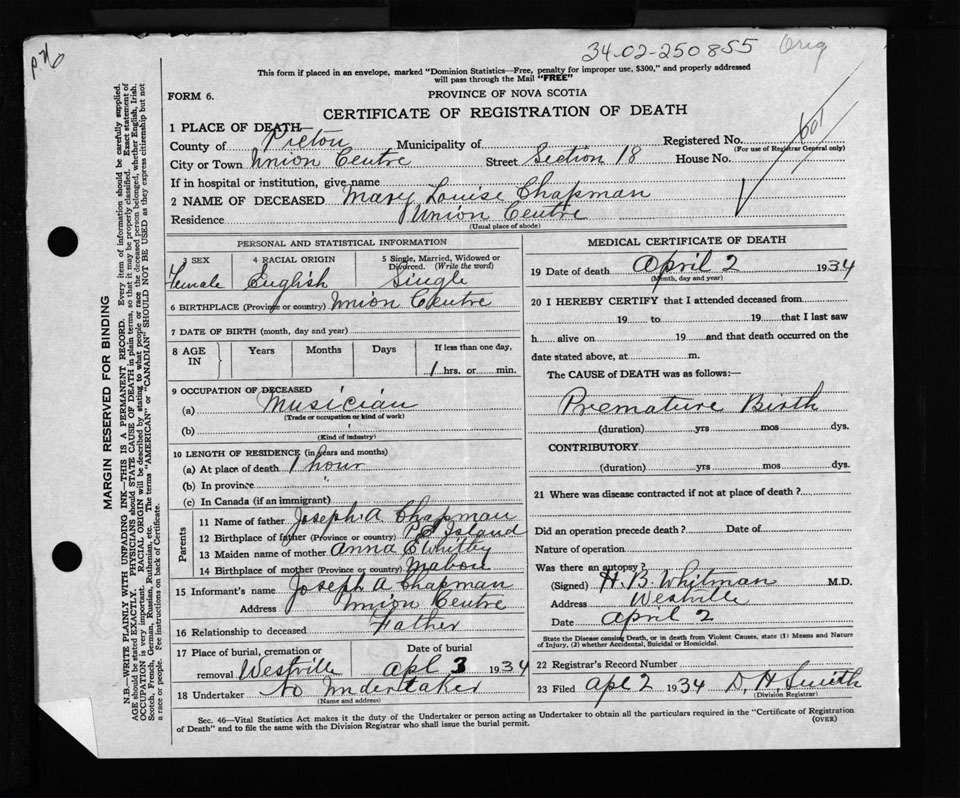 34-02-250855 Orig
This form if placed in an envelope, marked "Dominion Statistics—Free, penalty for improper use, $300," and properly addressed
will pass through the Mail "FREE"
FORM 6.
PROVINCE OF NOVA SCOTIA
CERTIFICATE OF REGISTRATION OF DEATH
1 PLACE OF DEATH—
County of Pictou Municipality of Registered No.
(For use of Registrar General only)
City or Town Union Centre Street Section 18 House No.
If in hospital or institution, give name
2 NAME OF DECEASED Mary Louise Chapman
Residence Union Centre
(Usual place of abode)
PERSONAL AND STATISTICAL INFORMATION
3 SEX 4 RACIAL ORIGIN 5 Single, Married, Widowed or
Divorced. (Write the word)
Female English Single
6 BIRTHPLACE (Province or country) Union Centre
7 DATE OF BIRTH (month, day and year)
8 AGE IN Years Months Days If less than one day,
1 hrs. or min.
9 OCCUPATION OF DECEASED
(a) Musician
(Trade or occupation or kind of work)
(b)
(Kind of industry)
10 LENGTH OF RESIDENCE (in years and months)
(a) At place of death 1 hour
(b) In province "
(c) In Canada (if an immigrant)
Parents
11 Name of father Joseph A Chapman
12 Birthplace of father (Province or country) P E Island
13 Maiden name of mother Anna E Whitby
14 Birthplace of mother (Province or country) Mabou
15 Informant's name Joseph A Chapman
Address Union Centre
16 Relationship to deceased Father
17 Place of burial, cremation or Date of burial
removal Westville Apl 3 1934
18 Undertaker No Undertaker
(Name and address)
MEDICAL CERTIFICATE OF DEATH
19 Date of death April 2 1934
(Month, day and year)
20 I HEREBY CERTIFY that I attended deceased from
19 to 19 that I last saw
h alive on 19 and that death occurred on the
date stated above, at m.
The CAUSE of DEATH was as follows:—
Premature Birth
(duration) yrs mos dys.
CONTRIBUTORY
(duration) yrs mos dys.
21 Where was disease contracted if not at place of death?
Did an operation precede death? Date of
Nature of operation
Was there an autopsy?
(Signed) H. B. Whitman M.D.
Address Westville
Date April 2
State the Disease causing Death, or in death from Violent Causes, state (1) Means and Nature
of Injury, (2) whether Accidental, Suicidal or Homicidal.
22 Registrar's Record Number
23 Filed Apl 2 1934 D. H. Smith
(Division Registrar)
Sec. 46—Vital Statistics Act makes it the duty of the Undertaker or person acting as Undertaker to obtain all the particulars required in the "Certificate of Registration
of Death" and to file the same with the Division Registrar who shall issue the burial permit.
(OVER)
MARGIN RESERVED FOR BINDING
N.B.—WRITE PLAINLY WITH UNFADING INK—THIS IS A PERMANENT RECORD. Every item of information should be carefully supplied.
AGE should be stated EXACTLY. PHYSICIANS should STATE CAUSE OF DEATH in plain terms, so that it may be properly classified. Exact statement of
OCCUPATION is very important. RACIAL ORIGIN will be described by stating to what people or race the deceased person belonged, whether English, Irish,
Scotch, French, German, Russian, Ruthenian, etc. The terms "AMERICAN" or "CANADIAN" SHOULD NOT BE USED as they express citizenship but not
a race or people. See instructions on back of Certificate.